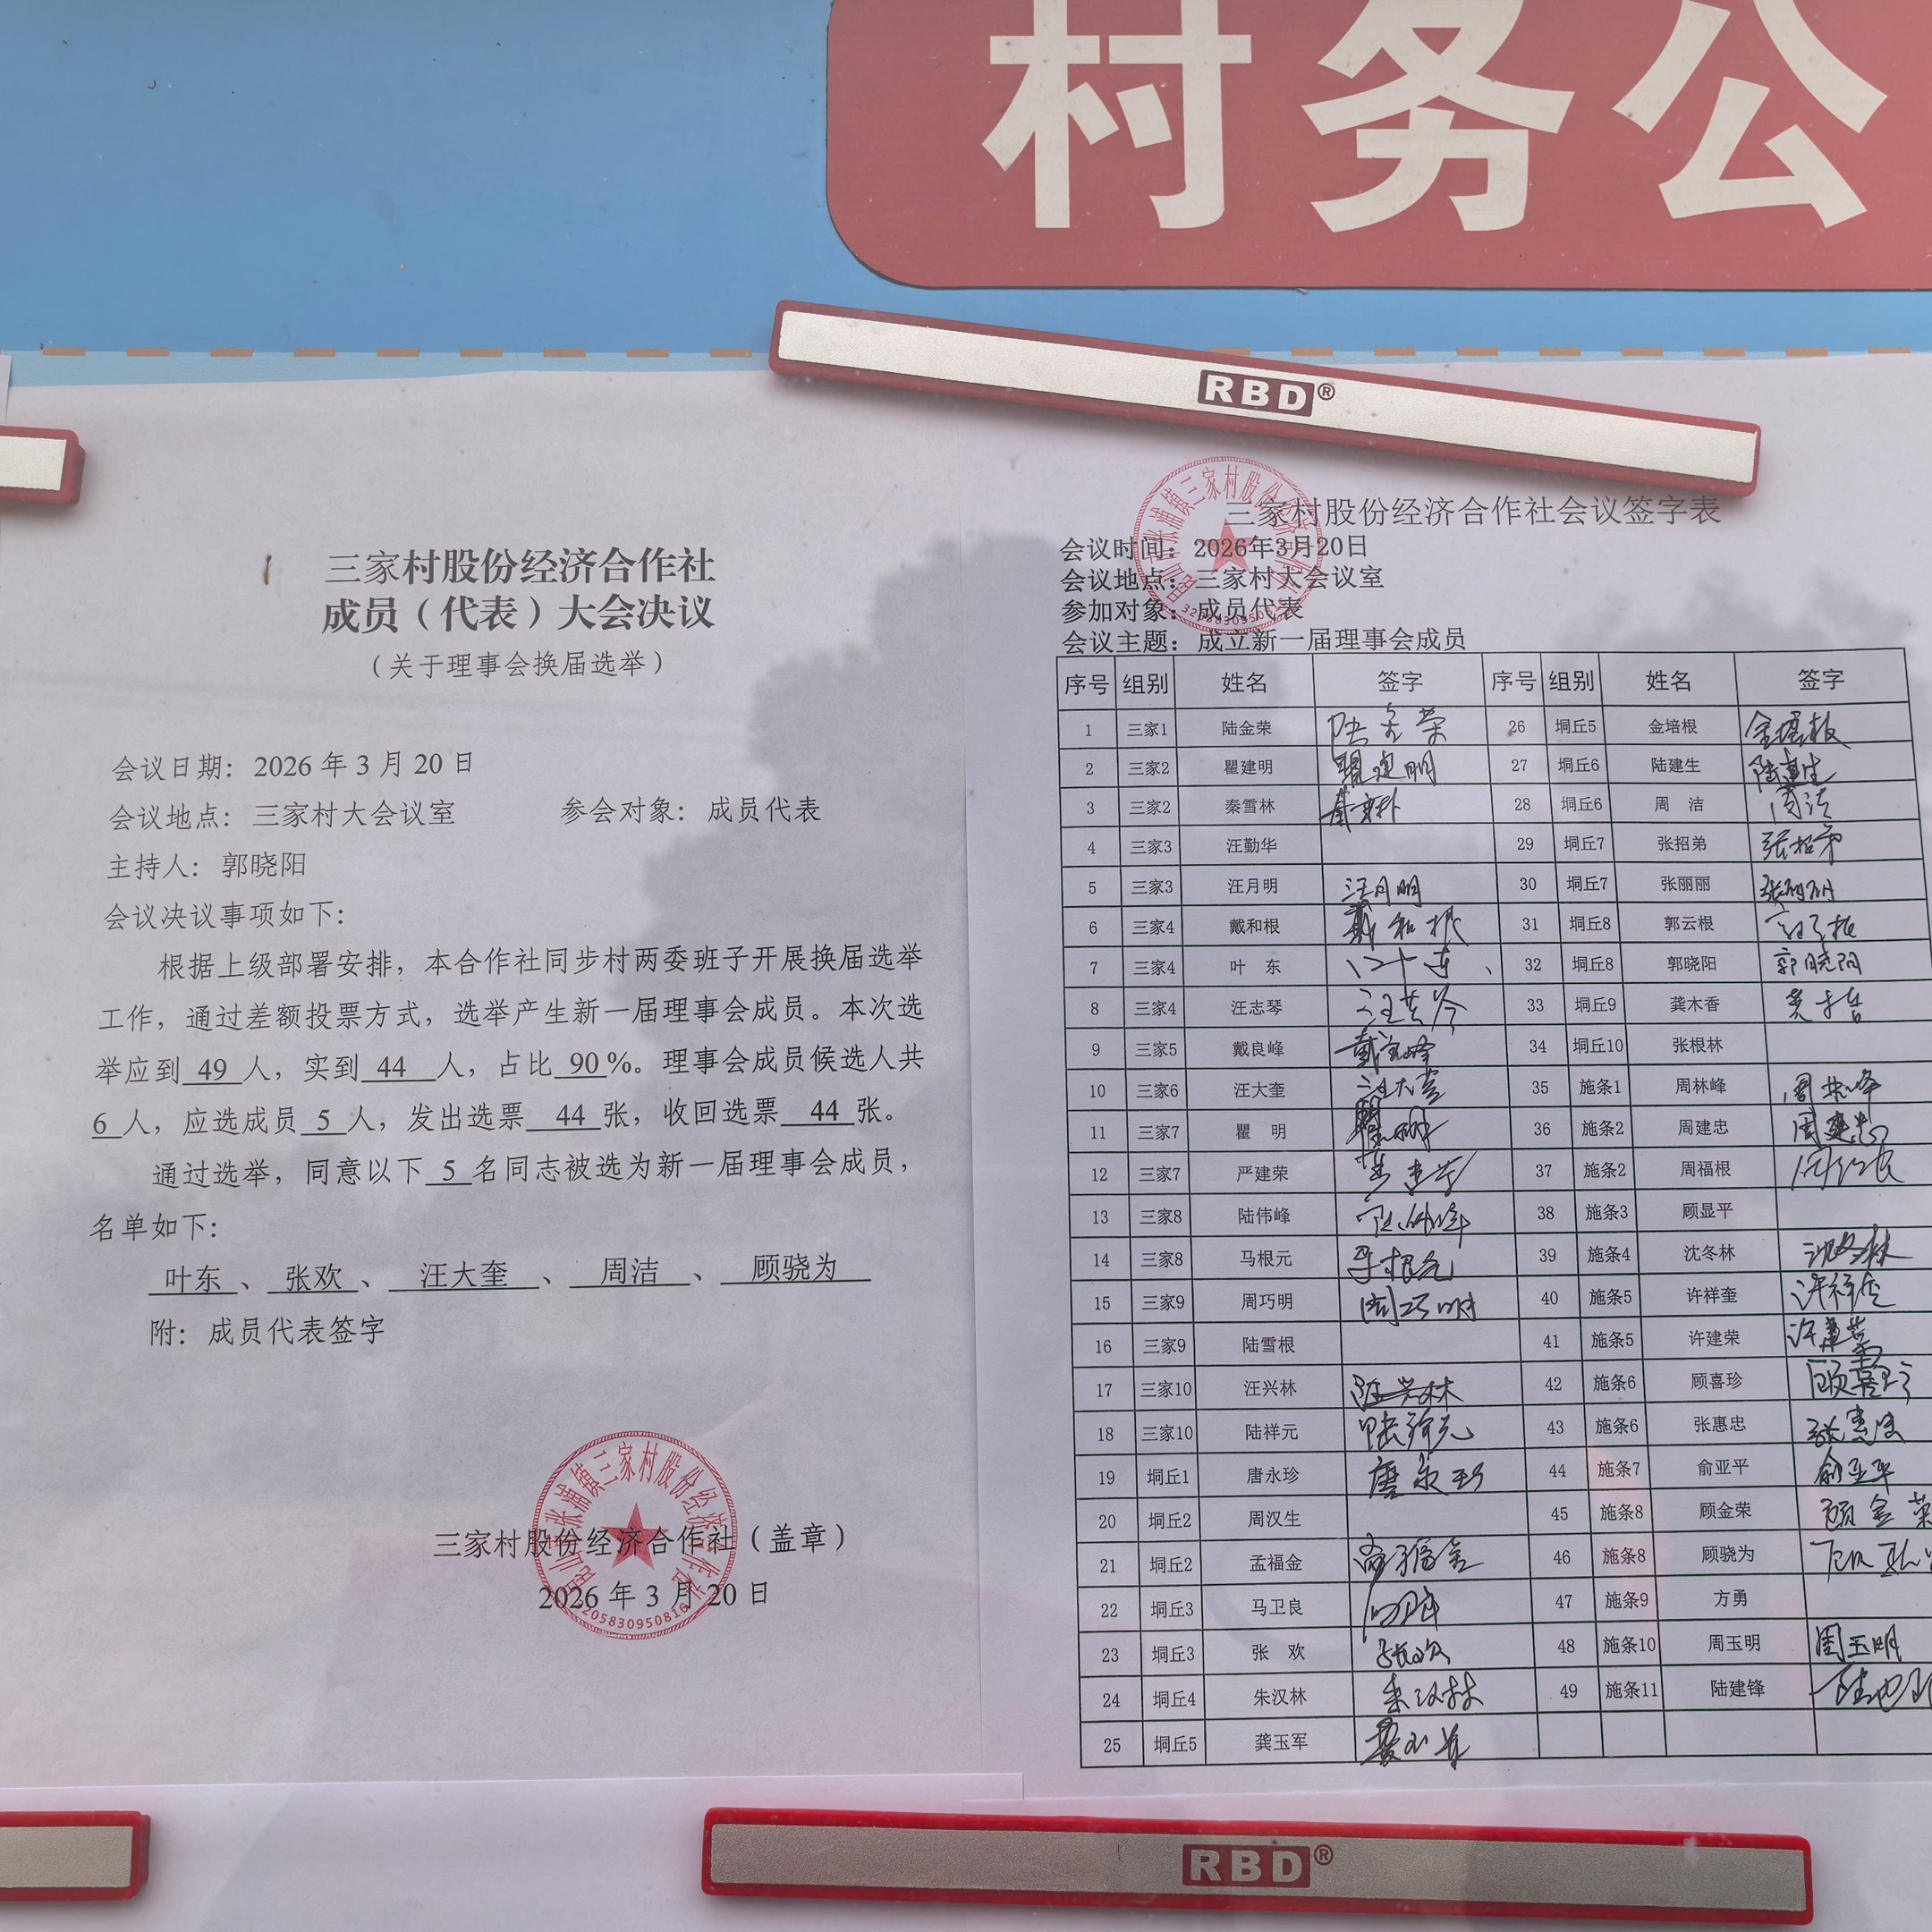 村务公
RBD®
三家村股份经济合作社
成员（代表）大会决议
（关于理事会换届选举）
会议日期：2026 年 3 月 20 日
会议地点：三家村大会议室 参会对象：成员代表
主持人：郭晓阳
会议决议事项如下：
根据上级部署安排，本合作社同步村两委班子开展换届选举
工作，通过差额投票方式，选举产生新一届理事会成员。本次选
举应到 49 人，实到 44 人，占比 90 %。理事会成员候选人共
6 人，应选成员 5 人，发出选票 44 张，收回选票 44 张。
通过选举，同意以下 5 名同志被选为新一届理事会成员，
名单如下：
叶东 、 张欢 、 汪大奎 、 周洁 、 顾骁为
附：成员代表签字
三家村股份经济合作社（盖章）
2026 年 3 月 20 日
3205830950816
三家村股份经济合作社会议签字表
会议时间：2026年3月20日
会议地点：三家村大会议室
参加对象：成员代表
会议主题：成立新一届理事会成员
序号 组别 姓名 签字 序号 组别 姓名 签字
1 三家1 陆金荣 陆金荣 26 垌丘5 金培根 金培根
2 三家2 瞿建明 瞿建明 27 垌丘6 陆建生 陆建生
3 三家2 秦雪林 秦雪林 28 垌丘6 周 洁 周洁
4 三家3 汪勤华 29 垌丘7 张招弟 张招弟
5 三家3 汪月明 汪月明 30 垌丘7 张丽丽 张丽丽
6 三家4 戴和根 戴和根 31 垌丘8 郭云根
7 三家4 叶 东 32 垌丘8 郭晓阳 郭晓阳
8 三家4 汪志琴 汪志琴 33 垌丘9 龚木香
9 三家5 戴良峰 戴良峰 34 垌丘10 张根林
10 三家6 汪大奎 汪大奎 35 施条1 周林峰 周林峰
11 三家7 瞿 明 瞿明 36 施条2 周建忠 周建忠
12 三家7 严建荣 37 施条2 周福根
13 三家8 陆伟峰 陆伟峰 38 施条3 顾显平
14 三家8 马根元 马根元 39 施条4 沈冬林 沈冬林
15 三家9 周巧明 周巧明 40 施条5 许祥奎 许祥奎
16 三家9 陆雪根 41 施条5 许建荣 许建荣
17 三家10 汪兴林 汪兴林 42 施条6 顾喜珍 顾喜珍
18 三家10 陆祥元 陆祥元 43 施条6 张惠忠 张惠忠
19 垌丘1 唐永珍 唐永珍 44 施条7 俞亚平 俞亚平
20 垌丘2 周汉生 45 施条8 顾金荣 顾金荣
21 垌丘2 孟福金 孟福金 46 施条8 顾骁为
22 垌丘3 马卫良 47 施条9 方勇
23 垌丘3 张 欢 张欢 48 施条10 周玉明 周玉明
24 垌丘4 朱汉林 朱汉林 49 施条11 陆建锋
25 垌丘5 龚玉军 龚玉军
RBD®